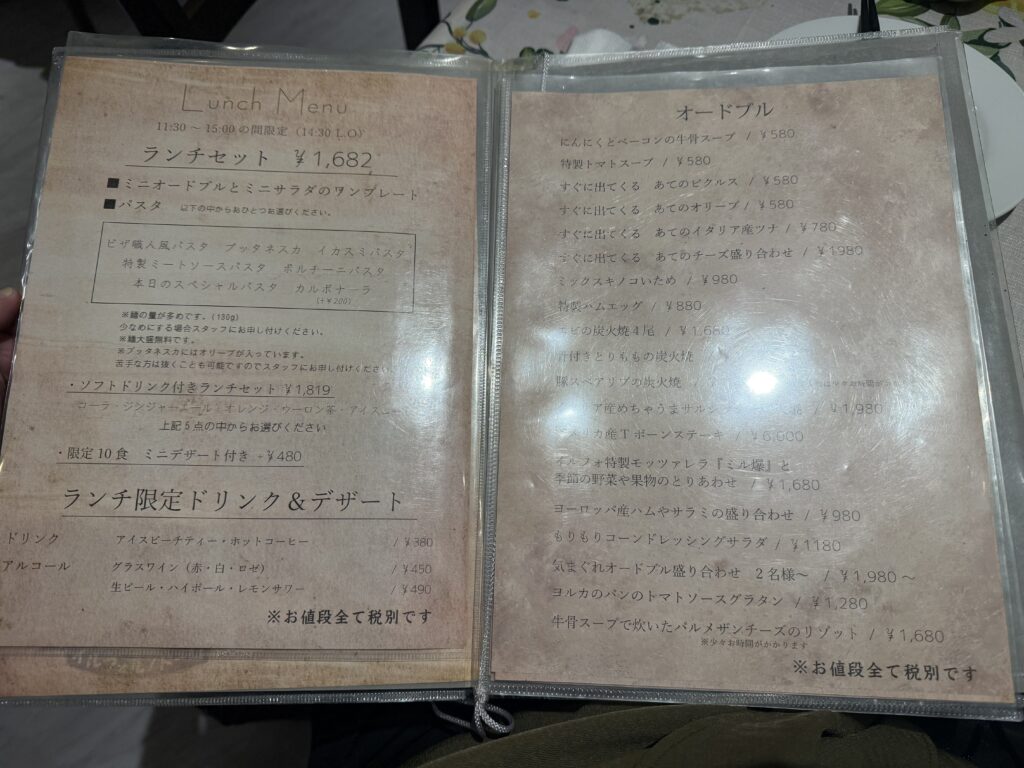 Lunch Menu
11:30 ～ 15:00 の間限定（14:30 L.O）
ランチセット ￥1,682
■ミニオードブルとミニサラダのワンプレート
■パスタ 以下の中からおひとつお選びください。
ピザ職人風パスタ プッタネスカ イカスミパスタ
特製ミートソースパスタ ポルチーニパスタ
本日のスペシャルパスタ カルボナーラ
(+￥200)
※麺の量が多めです。(130g)
少なめにする場合スタッフにお申し付けください。
※麺大盛無料です。
※プッタネスカにはオリーブが入っています。
苦手な方は抜くことも可能ですのでスタッフにお申し付けください。
・ソフトドリンク付きランチセット ￥1,819
コーラ・ジンジャーエール・オレンジ・ウーロン茶・アイス
上記5点の中からお選びください
・限定10食 ミニデザート付き +￥480
ランチ限定ドリンク＆デザート
ドリンク アイスピーチティー・ホットコーヒー / ￥380
アルコール グラスワイン（赤・白・ロゼ） / ￥450
生ビール・ハイボール・レモンサワー / ￥490
※お値段全て税別です
オードブル
にんにくとベーコンの牛骨スープ / ￥580
特製トマトスープ / ￥580
すぐに出てくる あてのピクルス / ￥580
すぐに出てくる あてのオリーブ / ￥580
すぐに出てくる あてのイタリア産ツナ / ￥780
すぐに出てくる あてのチーズ盛り合わせ / ￥1980
ミックスキノコいため / ￥980
特製ハムエッグ / ￥880
エビの炭火焼4尾 / ￥1,680
骨付きとりももの炭火焼
豚スペアリブの炭火焼
産めちゃうまサルシッチャ / ￥1,980
アメリカ産Tボーンステーキ / ￥6,600
イルフォルノ特製モッツァレラ『ミル爆』と
季節の野菜や果物のとりあわせ / ￥1,680
ヨーロッパ産ハムやサラミの盛り合わせ / ￥980
もりもりコーンドレッシングサラダ / ￥1180
気まぐれオードブル盛り合わせ 2名様～ / ￥1,980 ～
ヨルカのパンのトマトソースグラタン / ￥1,280
牛骨スープで炊いたパルメザンチーズのリゾット / ￥1,680
※少々お時間がかかります
※お値段全て税別です